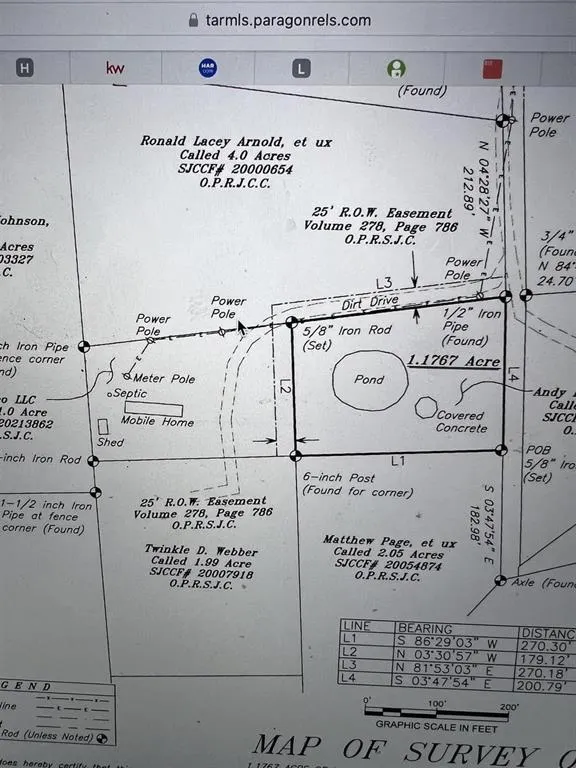 tarmls.paragonrels.com
H
kw
HAR
L
(Found)
Power
Pole
Ronald Lacey Arnold, et ux
Called 4.0 Acres
SJCCF# 20000654
O.P.R.J.C.C.
N 04°28'27" W
212.89'
25' R.O.W. Easement
Volume 278, Page 786
O.P.R.S.J.C.
ohnson,
Acres
03327
.C.
3/4"
(Found
N 84°
24.70
Power
Pole
L3
Dirt Drive
Power
Pole
Power
Pole
5/8" Iron Rod
(Set)
1/2" Iron
Pipe
(Found)
ch Iron Pipe
ence corner
nd)
Meter Pole
Septic
Mobile Home
Shed
L2
Pond
1.1767 Acre
L4
Covered
Concrete
Andy
Call
SJCC
O.
o LLC
1.0 Acre
20213862
.S.J.C.
-inch Iron Rod
L1
POB
5/8" Iron
(Set)
6-inch Post
(Found for corner)
1-1/2 inch Iron
Pipe at fence
corner (Found)
25' R.O.W. Easement
Volume 278, Page 786
O.P.R.S.J.C.
S 03°47'54" E
182.98'
Twinkle D. Webber
Called 1.99 Acre
SJCCF# 20007918
O.P.R.S.J.C.
Matthew Page, et ux
Called 2.05 Acres
SJCCF# 20054874
O.P.R.S.J.C.
Axle (Foun
LINE BEARING DISTANC
L1 S 86°29'03" W 270.30'
L2 N 03°30'57" W 179.12'
L3 N 81°53'03" E 270.18'
L4 S 03°47'54" E 200.79'
GEND
line
Rod (Unless Noted)
0' 100' 200'
GRAPHIC SCALE IN FEET
MAP OF SURVEY O
does hereby certify that